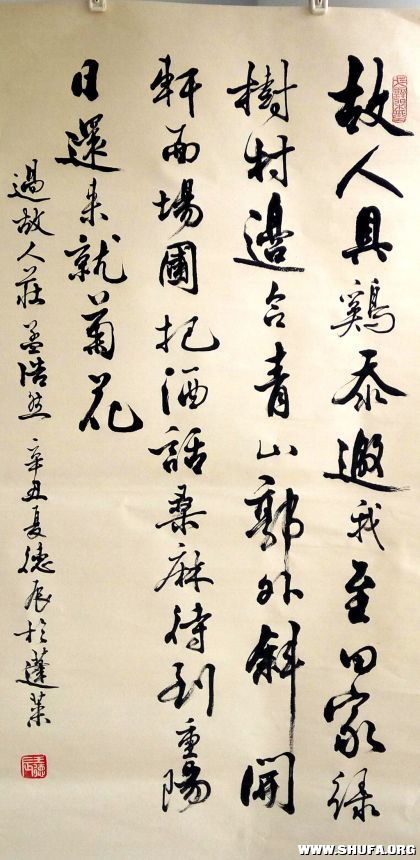 故人具鷄黍邀我至田家绿
樹村邊合青山郭外斜開
軒面場圃把酒話桑麻待到重陽
日還来就菊花
過故人莊孟浩然 辛丑夏德辰於蓬萊
WWW.SHUFA.ORG